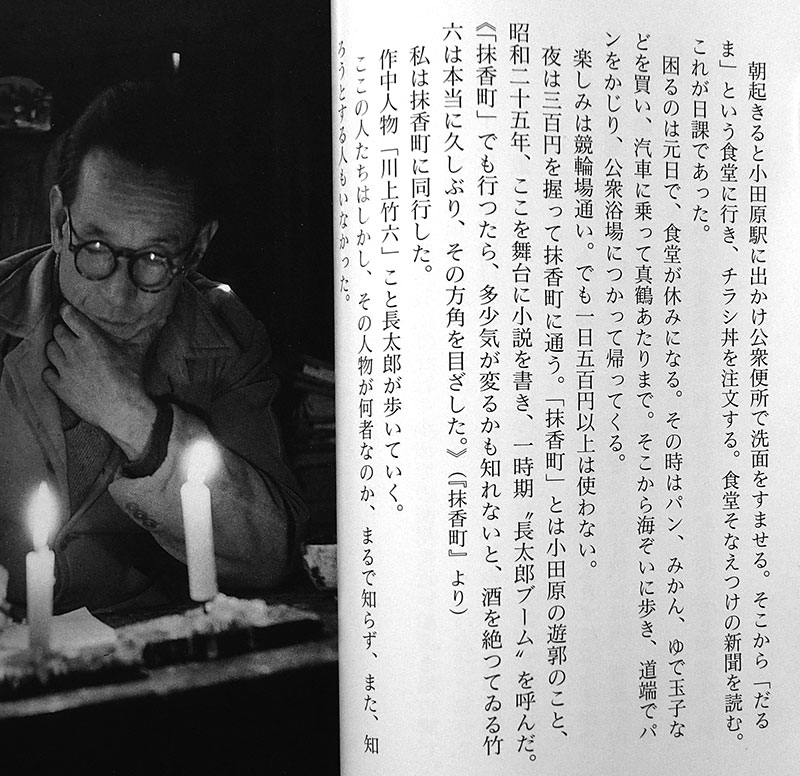 朝起きると小田原駅に出かけ公衆便所で洗面をすませる。そこから「だる
ま」という食堂に行き、チラシ丼を注文する。食堂そなえつけの新聞を読む。
これが日課であった。
困るのは元日で、食堂が休みになる。その時はパン、みかん、ゆで玉子な
どを買い、汽車に乗って真鶴あたりまで。そこから海ぞいに歩き、道端でパ
ンをかじり、公衆浴場につかって帰ってくる。
楽しみは競輪場通い。でも一日五百円以上は使わない。
夜は三百円を握って抹香町に通う。「抹香町」とは小田原の遊郭のこと、
昭和二十五年、ここを舞台に小説を書き、一時期〝長太郎ブーム〟を呼んだ。
《「抹香町」でも行つたら、多少気が変るかも知れないと、酒を絶つてゐる竹
六は本当に久しぶり、その方角を目ざした。》(『抹香町』より)
私は抹香町に同行した。
作中人物「川上竹六」こと長太郎が歩いていく。
ここの人たちはしかし、その人物が何者なのか、まるで知らず、また、知
ろうとする人もいなかった。